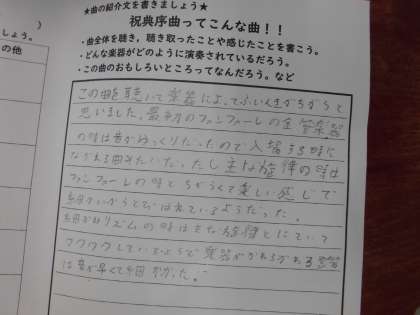 ★曲の紹介文を書きましょう★
祝典序曲ってこんな曲！！
・曲全体を聴き，聴き取ったことや感じたことを書こう。
・どんな楽器がどのように演奏されているだろう。
・この曲のおもしろいところってなんだろう。など
しょう。
の他
この曲を聴いて楽器によってふいんきがちがうと
思いました。最初のファンファーレの金管楽器
の時は音がゆっくりだったので入場する時に
ながれる曲みたいだった。主な旋律の時は
ファンファーレの時とちがくて楽しい感じで
とばれているようだった。
細かいリズムの時は主な旋律とにていて
ワクワクしているようで楽器がかわるがわる
は音が早くて細かかった。